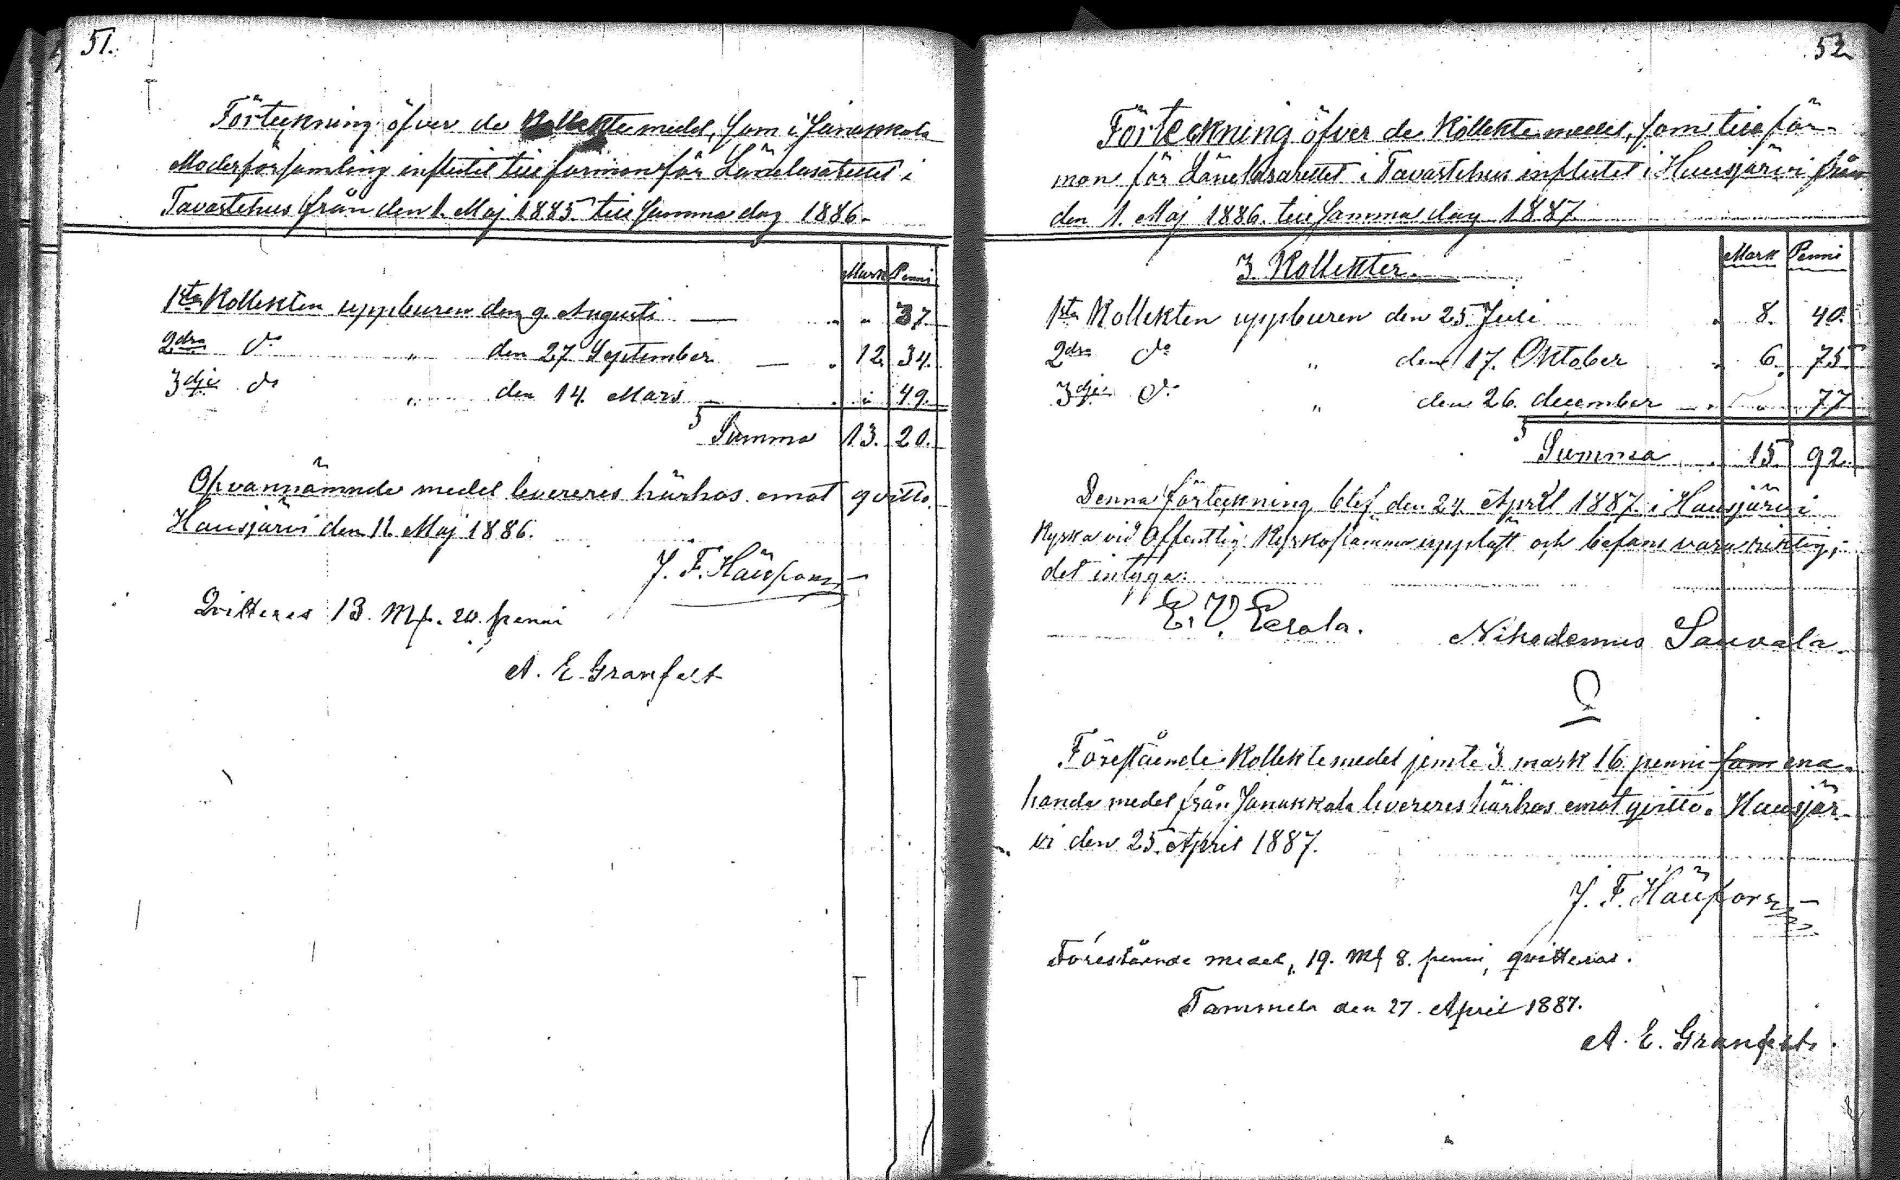 51.
Förteckning öfver de Kollektemedel, som i Janakkala
Moderförsamling influtit till förmon för Länelasarettet i
Tavastehus från den 1. Maj 1885 till samma dag 1886.
Mark Penni
1sta Kollekten uppburen den 9. Augusti — " " 37.
2dra do " den 27 September — " 12. 34.
3dje do " den 14. Mars — " " 49.
Summa 13. 20.
Ofvannämnde medel levereres härhos emot qvitto.
Hausjärvi den 12. Maj 1886.
J. F. Häusfors
Qvitteres 13. Mk. 20. penni
A. E. Granfelt
52
Förteckning öfver de Kollektemedel, som till för-
mon för Länelasarettet i Tavastehus influtit i Hausjärvi från
den 1. Maj 1886. till samma dag 1887.
3 Kollekter.
Mark Penni
1sta Kollekten uppburen den 25 Juli " 8. 40.
2dra do " den 17. Oktober " 6. 75
3dje do " den 26. december — " " 77
Summa " 15 92.
Denna förteckning blef den 24. April 1887. i Hausjärvi
Kyrka vid Offentlig Kyrkostämma uppläst och befans vara riktig;
det intyga:
E. V. Eerola. Nikodemus Sauvala.
Förestående Kollektemedel jemte 3 mark 16. penni som ena-
handa medel från Janakkala levereres härhos emot qvitto. Hausjär-
vi den 25. April 1887.
J. F. Häusfors
Förestående medel, 19. Mk 8. penni, qvitteras.
Tammela den 27. April 1887.
A. E. Granfelt.